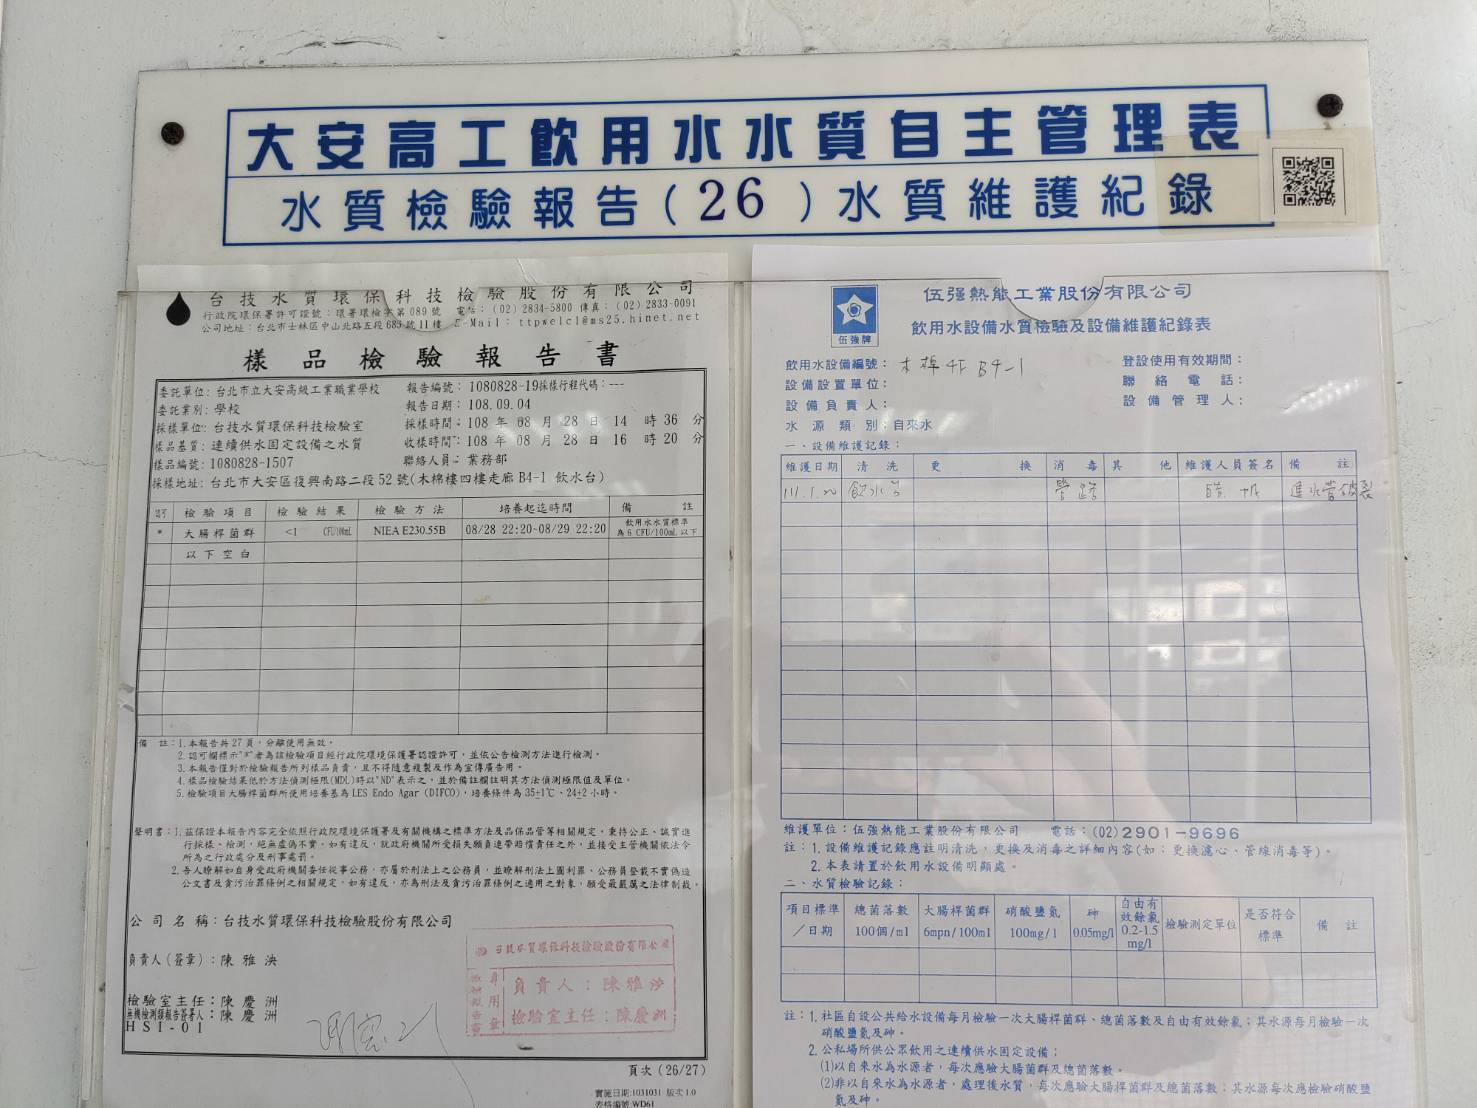 大安高工飲用水水質自主管理表
水質檢驗報告(26)水質維護紀錄
台技水質環保科技檢驗股份有限公司
行政院環保署許可證號：環署環檢字第089號 電話：(02) 2834-5800 傳真：(02) 2833-0091
公司地址：台北市士林區中山北路五段685號11樓 E-Mail：ttpwelcl@ms25.hinet.net
樣品檢驗報告書
委託單位：台北市立大安高級工業職業學校 報告編號：1080828-19採樣行程代碼：---
委託業別：學校 報告日期：108.09.04
採樣單位：台技水質環保科技檢驗室 採樣時間：108 年 08 月 28 日 14 時 36 分
樣品基質：連續供水固定設備之水質 收樣時間：108 年 08 月 28 日 16 時 20 分
樣品編號：1080828-1507 聯絡人員：業務部
採樣地址：台北市大安區復興南路二段52號(木棉樓四樓走廊 B4-1 飲水台)
認可 檢驗項目 檢驗結果 檢驗方法 培養起迄時間 備註
* 大腸桿菌群 <1 CFU/100mL NIEA E230.55B 08/28 22:20~08/29 22:20 飲用水水質標準
為6 CFU/100mL 以下
以下空白
備 註：1.本報告共27頁，分離使用無效。
2.認可欄標示"*"者為該檢驗項目經行政院環境保護署認證許可，並依公告檢測方法進行檢測。
3.本報告僅對於檢驗報告所列樣品負責，且不得隨意複製及作為宣傳廣告用。
4.樣品檢驗結果低於方法偵測極限(MDL)時以"ND"表示之，並於備註欄註明其方法偵測極限值及單位。
5.檢驗項目大腸桿菌群所使用培養基為LES Endo Agar (DIFCO)，培養條件為 35±1℃、24±2小時。
聲明書：1.茲保證本報告內容完全依照行政院環境保護署及有關機構之標準方法及品保品管等相關規定，秉持公正、誠實進
行採樣、檢測，絕無虛偽不實，如有違反，就政府機關所受損失願負連帶賠償責任之外，並接受主管機關依法令
所為之行政處分及刑事處罰。
2.吾人瞭解如自身受政府機關委任從事公務，亦屬於刑法上之公務員，並瞭解刑法上圖利罪、公務員登載不實偽造
公文書及貪污治罪條例之相關規定，如有違反，亦為刑法及貪污治罪條例之適用之對象，願受最嚴厲之法律制裁。
公司名稱：台技水質環保科技檢驗股份有限公司
負責人(簽章)：陳雅泱
檢驗室主任：陳慶洲
無機檢測類報告簽署人：陳慶洲
HSI-01
台技水質環保科技檢驗股份有限公司
負責人：陳雅泱
檢驗室主任：陳慶洲
頁次 (26/27)
實施日期:1031031 版次1.0
表格編號:WD61
伍強牌
伍强熱能工業股份有限公司
飲用水設備水質檢驗及設備維護紀錄表
飲用水設備編號：木棉4F B4-1 登設使用有效期間：
設備設置單位： 聯絡電話：
設備負責人： 設備管理人：
水源類別：自來水
一、設備維護記錄：
維護日期 清洗 更換 消毒 其他 維護人員簽名 備註
111.1.20 飲水台 管路 進水管破裂
維護單位：伍強熱能工業股份有限公司 電話：(02)2901-9696
註：1.設備維護記錄應註明清洗、更換及消毒之詳細內容(如：更換濾心、管線消毒等)。
2.本表請置於飲用水設備明顯處。
二、水質檢驗記錄：
項目標準／日期 總菌落數 100個/ml 大腸桿菌群 6mpn/100ml 硝酸鹽氮 100mg/l 砷 0.05mg/l 自由有效餘氯 0.2-1.5 mg/l 檢驗測定單位 是否符合標準 備註
註：1.社區自設公共給水設備每月檢驗一次大腸桿菌群、總菌落數及自由有效餘氯；其水源每月檢驗一次
硝酸鹽氮及砷。
2.公私場所供公眾飲用之連續供水固定設備：
(1)以自來水為水源者，每次應驗大腸菌群及總菌落數。
(2)非以自來水為水源者，處理後水質，每次應驗大腸桿菌群及總菌落數；其水源每次應檢驗硝酸鹽
氮及砷。